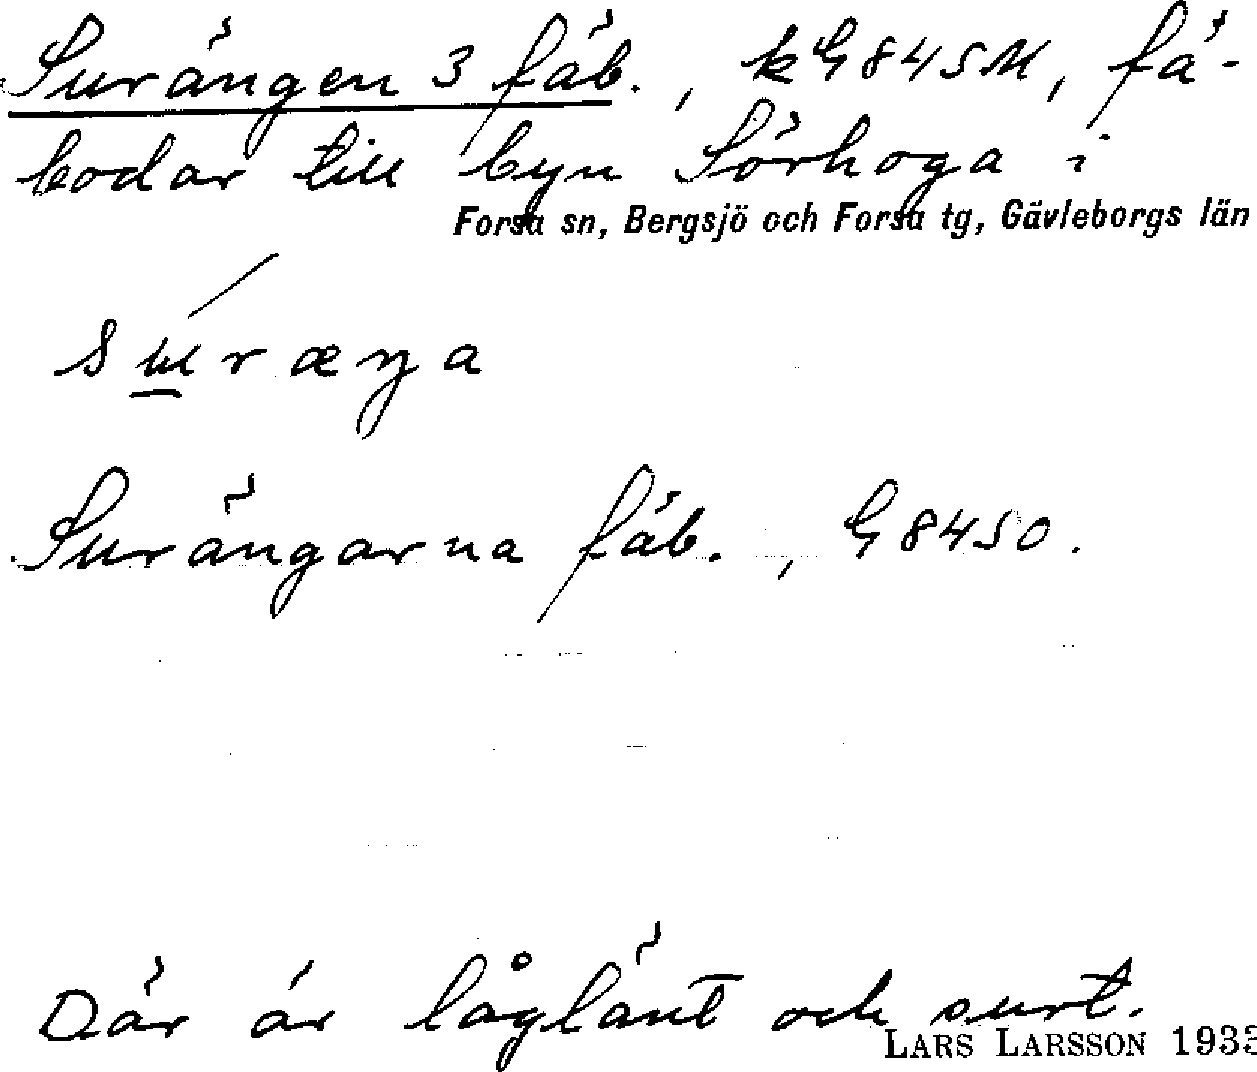 Surängen 3 fäb., kG845M, fä-
bodar till byn Sörhoga i
Forsa sn, Bergsjö och Forsa tg, Gävleborgs län
Surängarna fäb., G8450.
Där är låglänt och surt.
LARS LARSSON 193